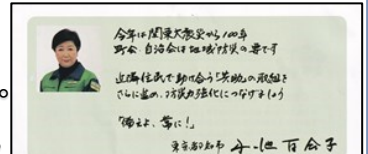 今年は関東大震災から100年
町会・自治会は地域防災の要です
近隣住民で助け合う「共助」の取組を
さらに進め、防災力強化につなげましょう
「備えよ、常に!」
東京都知事 小池百合子